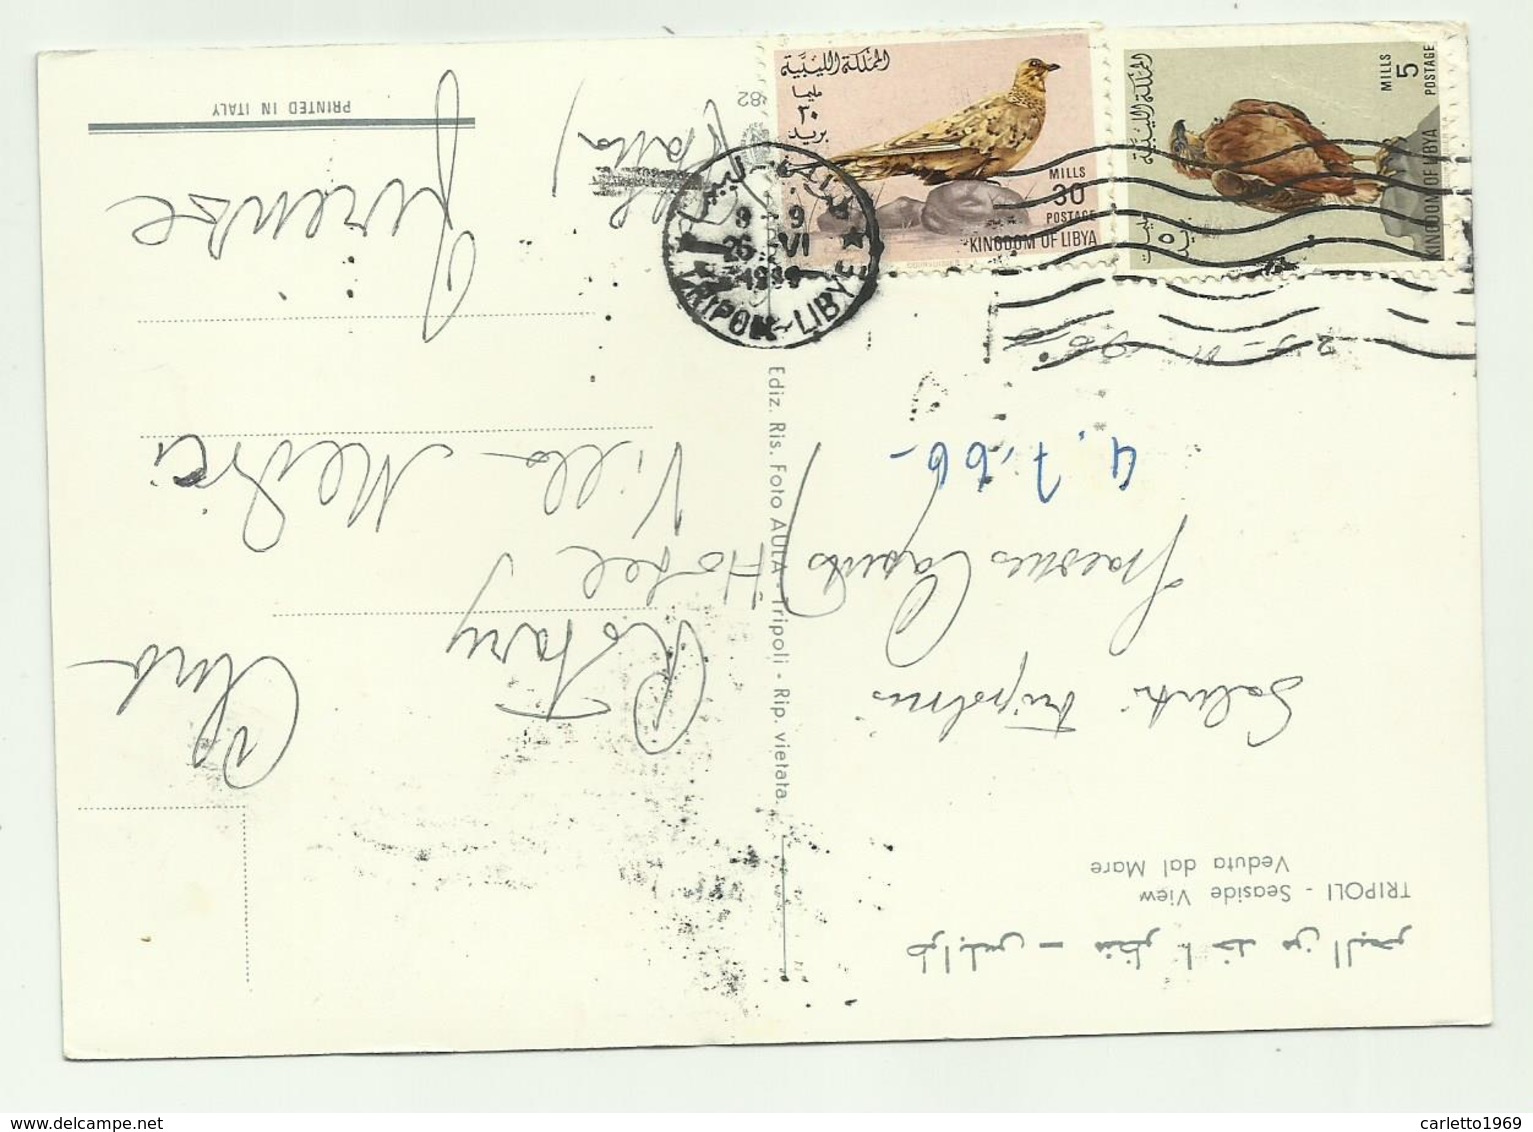 طرابلس - منظر اخذ من البحر
TRIPOLI - Seaside View
Veduta dal Mare
Saluti tripolini
4.7.66-
Ediz. Ris. Foto AULA - Tripoli - Rip. vietata
82
Club
Rotary
Hotel
Villa Medici
Firenze
(Italia)
PRINTED IN ITALY
المملكة الليبية
مليما
٣٠
بريد
MILLS
30
POSTAGE
KINGDOM OF LIBYA
المملكة الليبية
٥
MILLS
5
POSTAGE
KINGDOM OF LIBYA
9
26 VI
TRIPOLI-LIBYE
carletto1969